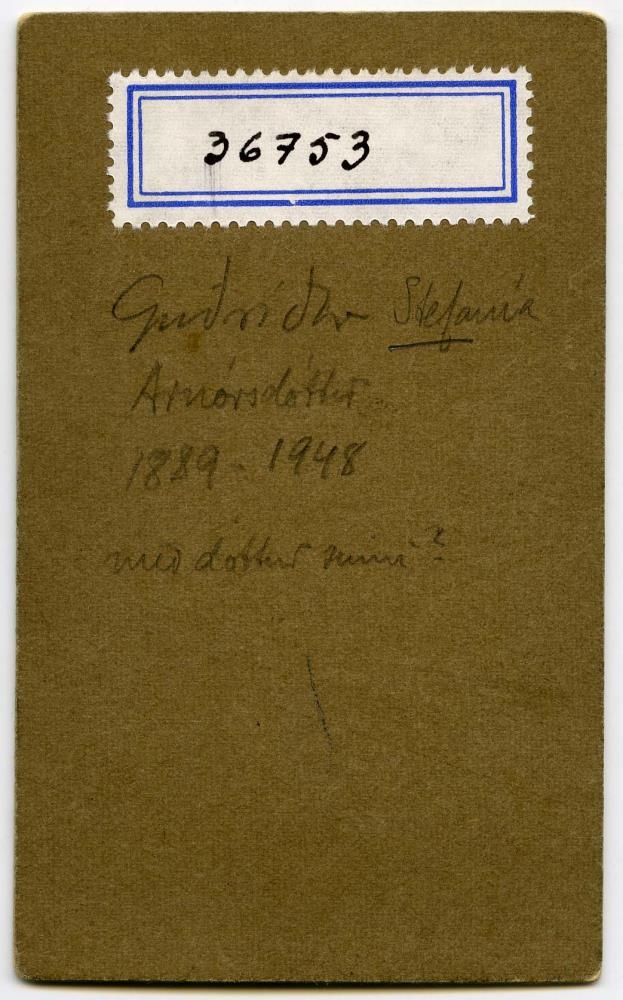 36753
Guðríður Stefanía
Arnórsdóttir
1889 - 1948
með dóttur sinni?